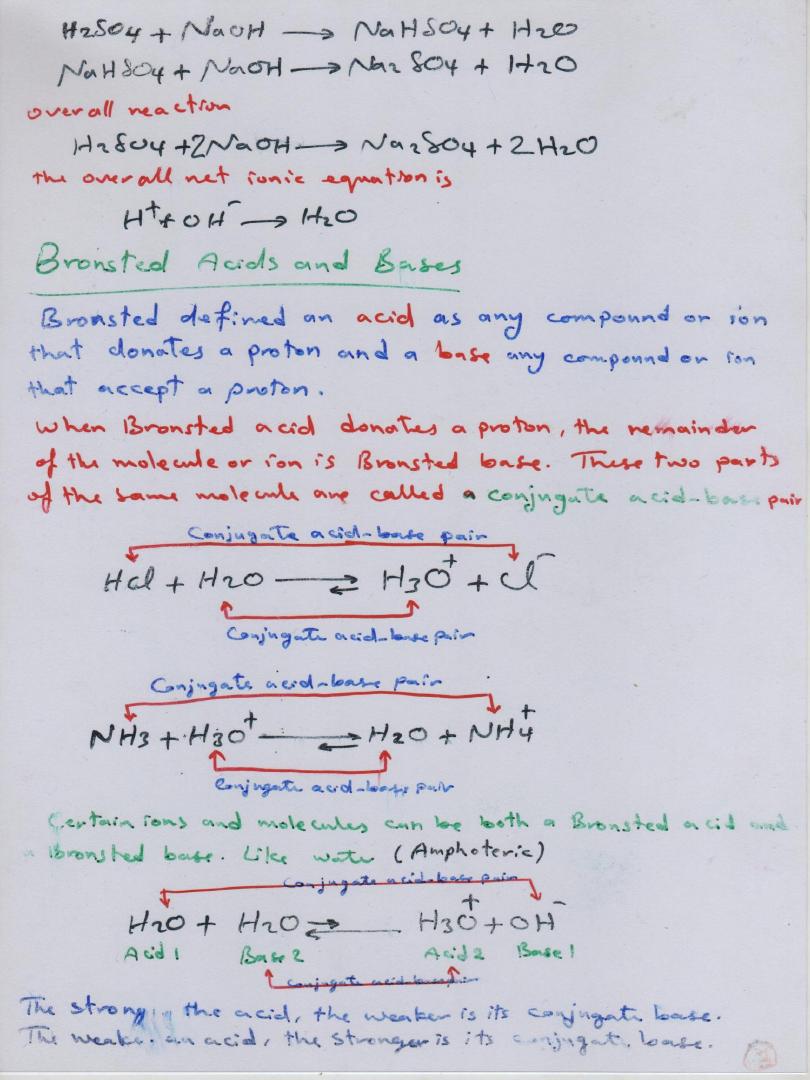 H2SO4 + NaOH → NaHSO4 + H2O
NaHSO4 + NaOH → Na2SO4 + H2O
overall reaction
H2SO4 + 2NaOH → Na2SO4 + 2H2O
the overall net ionic equation is
H+ + OH- → H2O
Bronsted Acids and Bases
Bronsted defined an acid as any compound or ion
that donates a proton and a base any compound or ion
that accept a proton.
When Bronsted acid donates a proton, the remainder
of the molecule or ion is Bronsted base. These two parts
of the same molecule are called a conjugate acid-base pair
Conjugate acid-base pair
HCl + H2O ⇌ H3O+ + Cl-
Conjugate acid-base pair
Conjugate acid-base pair
NH3 + H3O+ ⇌ H2O + NH4+
Conjugate acid-base pair
Certain ions and molecules can be both a Bronsted acid and
a Bronsted base. Like water (Amphoteric)
Conjugate acid-base pair
H2O + H2O ⇌ H3O+ + OH-
Acid 1 Base 2 Acid 2 Base 1
Conjugate acid-base pair
The strong the acid, the weaker is its conjugate base.
The weaker an acid, the stronger is its conjugate base.